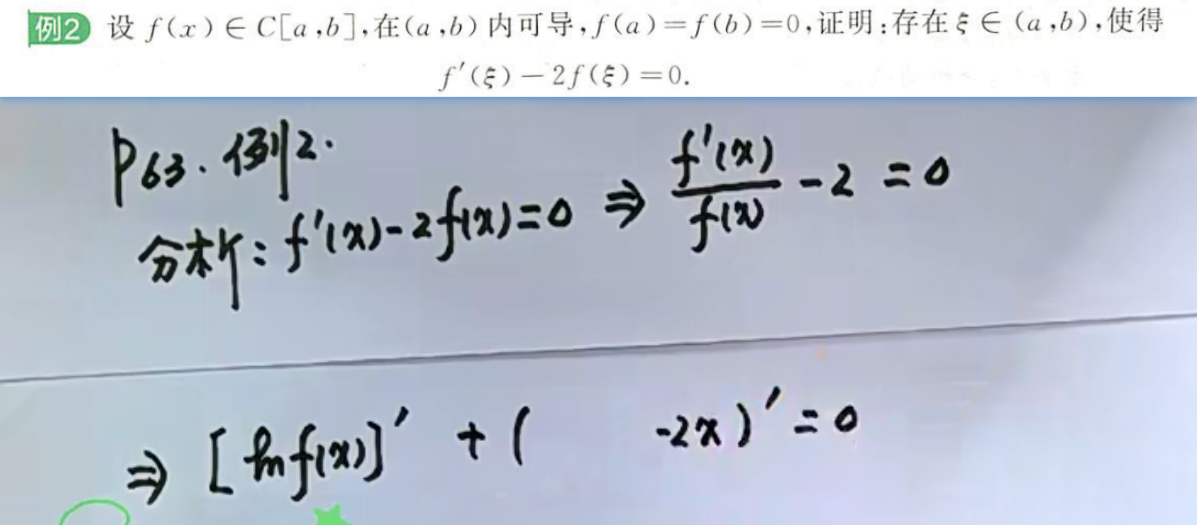 例2 设 f(x)∈C[a,b],在(a,b)内可导,f(a)=f(b)=0,证明:存在ξ∈(a,b),使得
f′(ξ)-2f(ξ)=0.
P63. 例2.
分析: f'(x)-2f(x)=0 ⇒ f'(x)/f(x) -2 =0
⇒ [ln f(x)]' + ( -2x)' =0